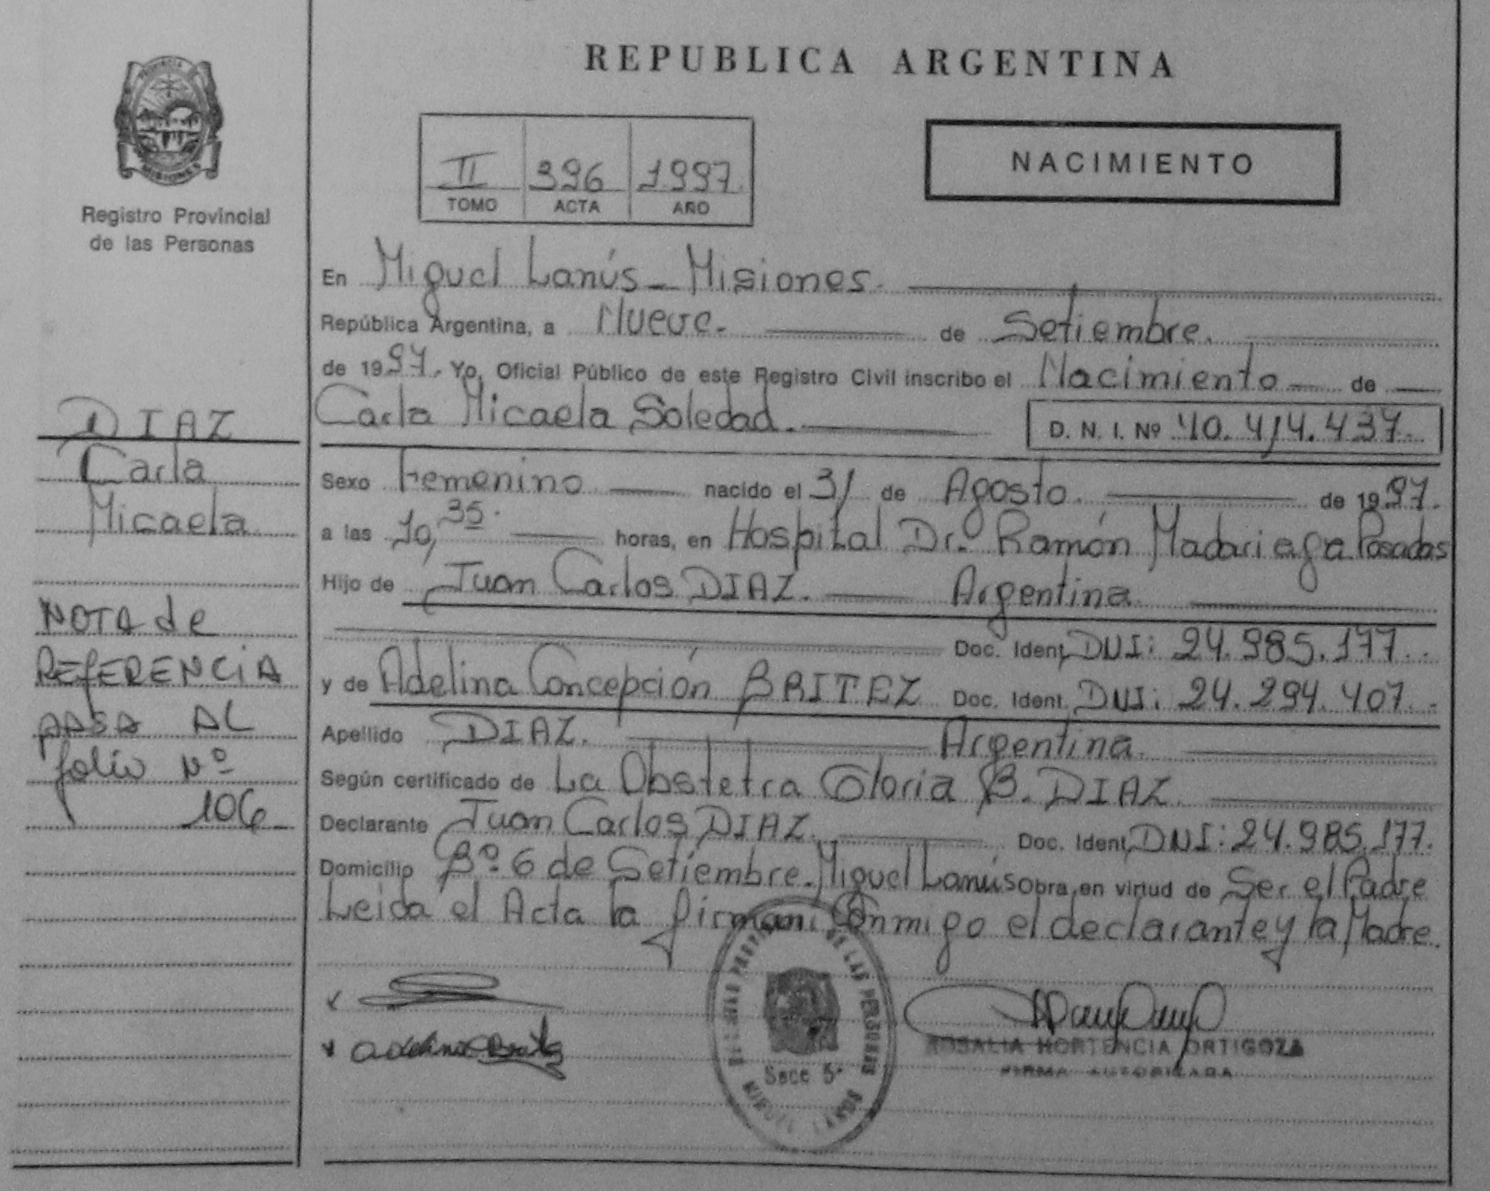 REPUBLICA ARGENTINA
PROVINCIA DE
MISIONES
Registro Provincial
de las Personas
II 396 1997
TOMO ACTA AÑO
NACIMIENTO
En Miguel Lanús - Misiones.
República Argentina, a Nueve. de Setiembre.
de 1997. Yo, Oficial Público de este Registro Civil inscribo el Nacimiento de
Carla Micaela Soledad. D. N. I. Nº 40.414.437.
Sexo Femenino nacido el 31 de Agosto. de 1997.
a las 10,35. horas, en Hospital Dr. Ramón Madariaga Posadas
Hijo de Juan Carlos DIAZ. Argentina
Doc. Ident. DNI: 24.985.177.
y de Adelina Concepción BRITEZ Doc. Ident. DNI: 24.294.407.
Apellido DIAZ. Argentina.
Según certificado de La Obstetra Gloria B. DIAZ.
Declarante Juan Carlos DIAZ. Doc. Ident. DNI: 24.985.177.
Domicilio Bº 6 de Setiembre. Miguel Lanús obra en virtud de Ser el Padre
Leida el Acta la firman Conmigo el declarante y la Madre.
DIAZ
Carla
Micaela
NOTA de
REFERENCIA
PASA AL
folio Nº
106
Adelina Britez
DE LAS PERSONAS
Secc 5ª
MIGUEL LANUS
ROSALIA HORTENCIA ORTIGOZA
FIRMA AUTORIZADA